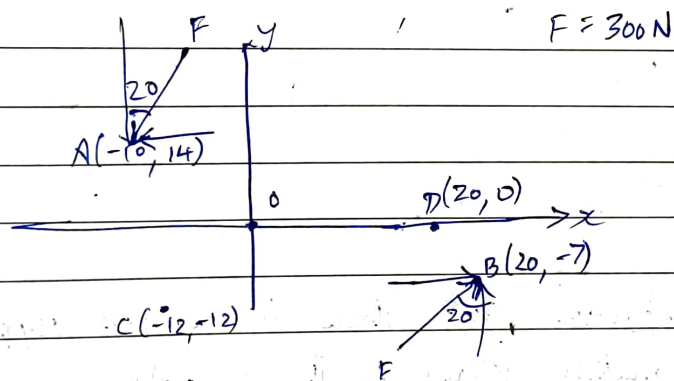 F
y
F = 300 N
20
A(-10, 14)
0
D(20, 0)
x
B(20, -7)
C(-12, -12)
20
F